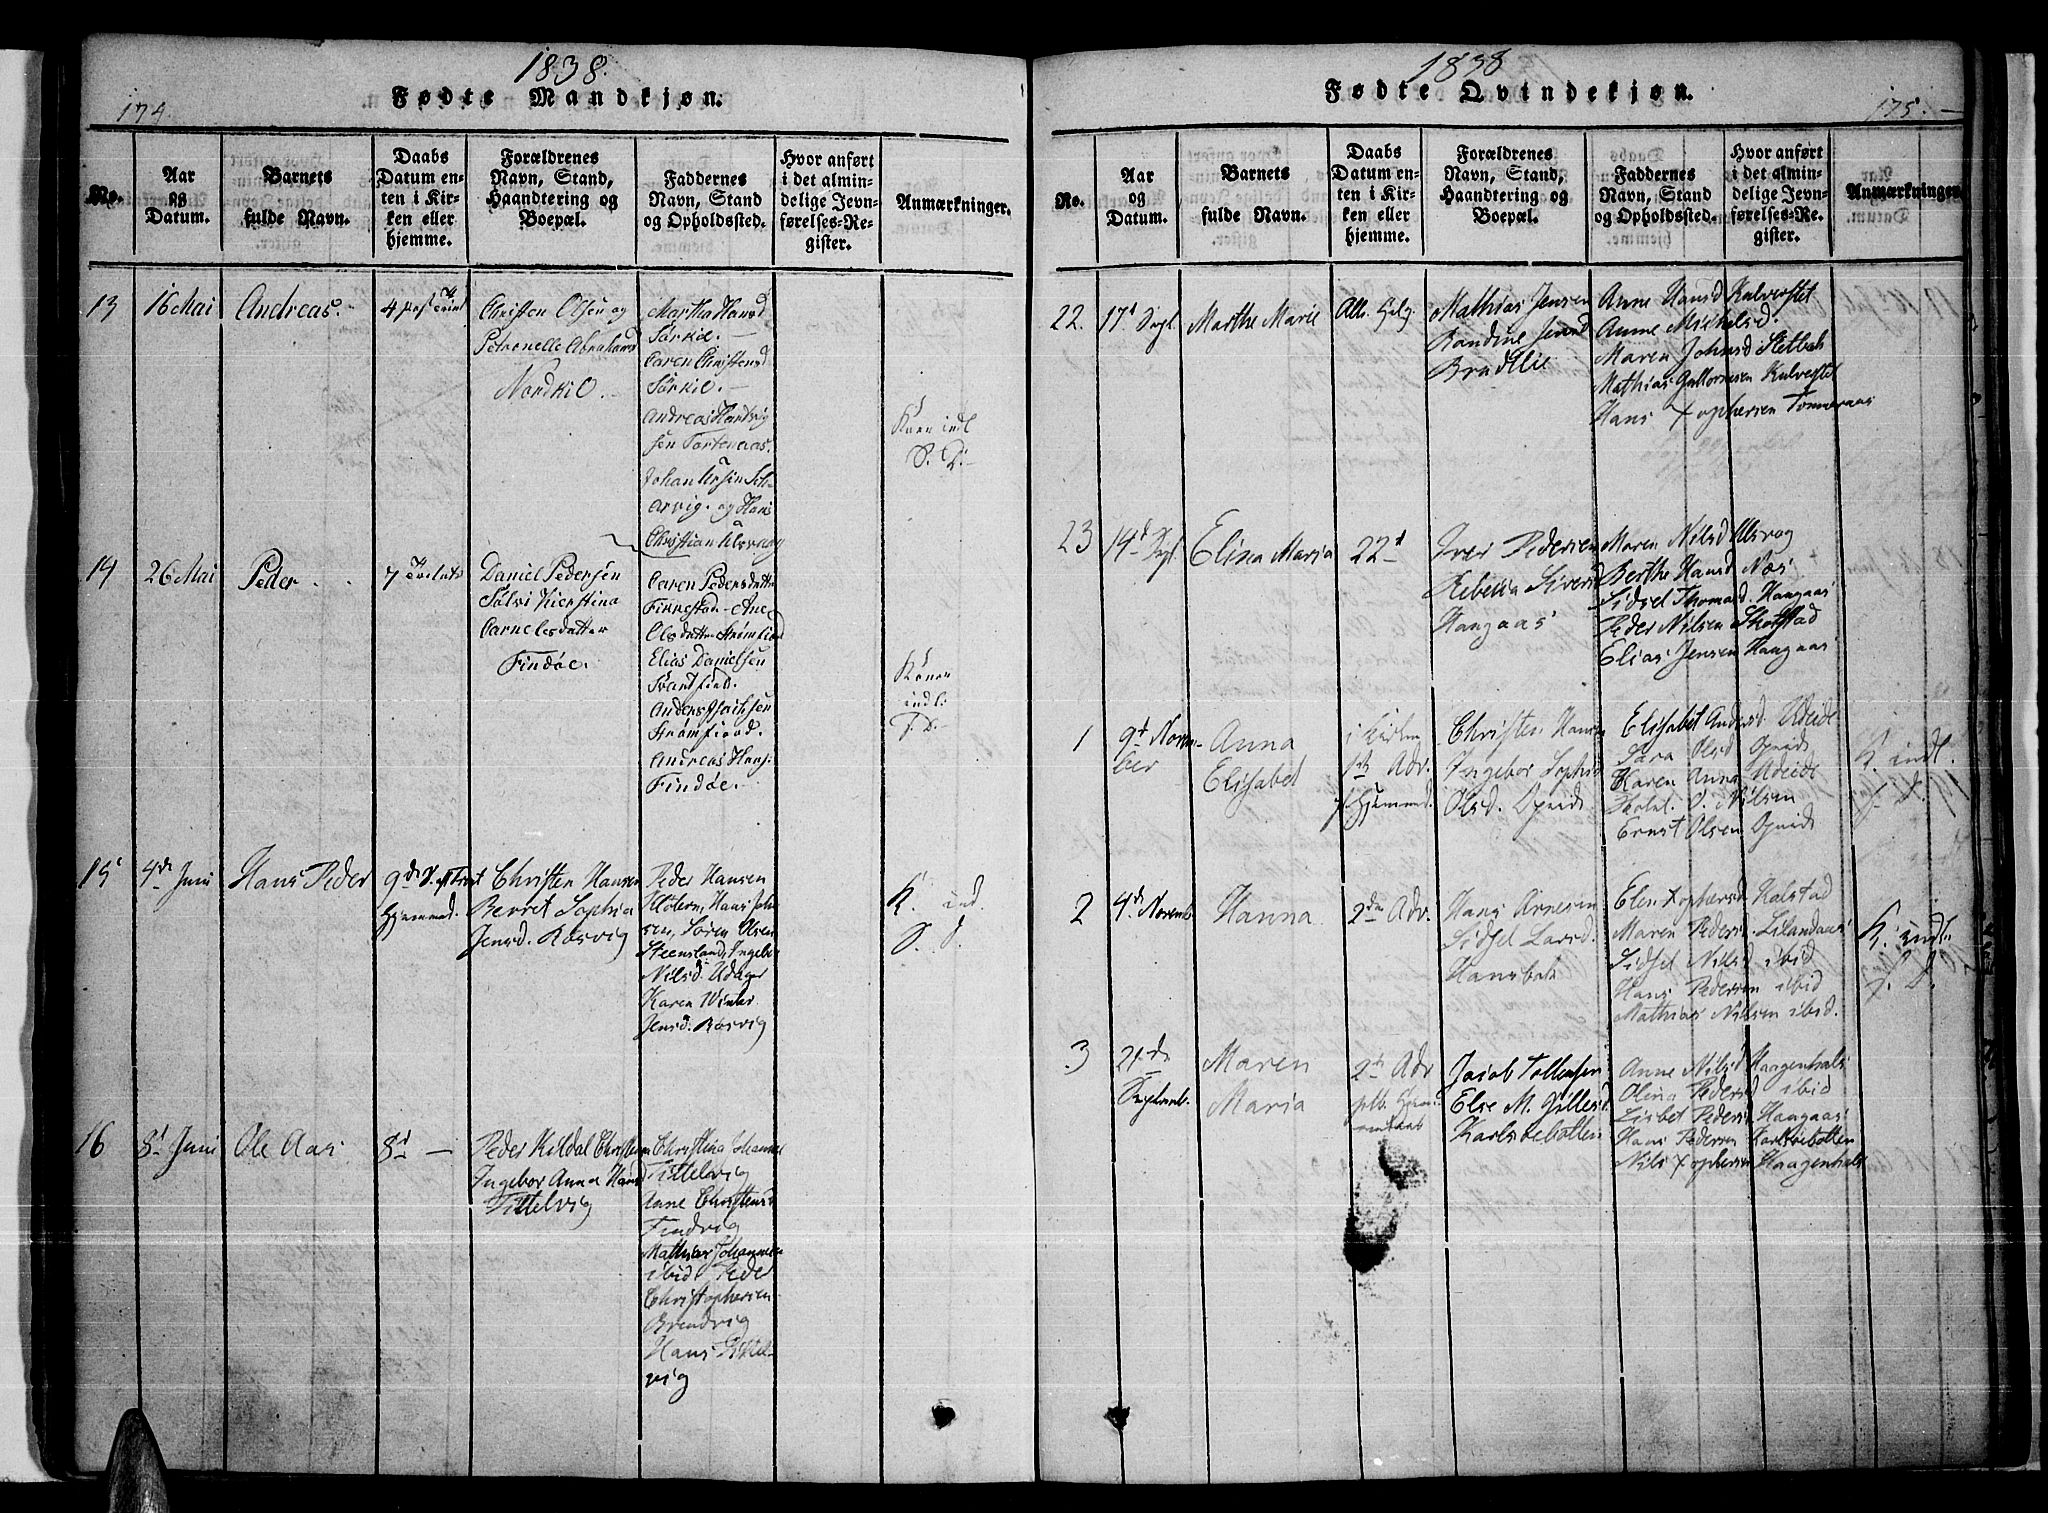 174.
1838.
Fødte Mandkjøn.
No.
Aar
og
Datum.
Barnets
fulde Navn.
Daabs
Datum en-
ten i Kir-
ken eller
hjemme.
Forældrenes
Navn, Stand,
Haandtering og
Boepæl.
Faddernes
Navn, Stand
og Opholdssted.
Hvor anført
i det almin-
delige Jevn-
førelses-Re-
gister.
Anmærkninger.
13
16 Mai
Andreas.
4 post Trinit
Christen Olsen og
Petronelle Abrahamsd
Nordkil.
Martha Hansd
Sørkil.
Caren Christensd
Sørkil.
Andreas Hartvig
sen Tortenaas.
Johan
arvig. og Hans
Christian Ulsvaag
Konen indl
S. D.
14
26 Mai
Peder
7
Daniel Pedersen
Sølvi Kierstina
Carnelesdatter
Findøe.
Caren Pedersdatter
Finnestad. Ane
Olsdatter Strømfiord
Elias Danielsen
Svartfield.
Anders Isachsen
Strømfiord.
Andreas Hans:
Findøe.
Konen
indl:
S. D.
15
4de Juni
Hans Peder
9de S. p Trinit
hjemmed.
Christen Hansen
Berret Sophia
Jensd. Røsvig
Peder Hansen
Hans Joh
sen, Søren Olsen
Steensland, Ingebor
Nilsd. Udager
Karen
Jensd. Røsvig
K. ind.
S. D.
16
8d Juni
Ole Aas
8d
Peder Kildal Christensen
Ingebor Anna Hansd
Tittelvig
Christina Johannes
Tittelvig
Anne Christensd
Findvig
Mathias Johannesen
ibid Peder
Christophersen
Brendvig
Hans Tittel-
vig
1838
Fødte Qvindekjøn.
175.
No.
Aar
og
Datum.
Barnets
fulde Navn.
Daabs
Datum en-
ten i Kir-
ken eller
hjemme.
Forældrenes
Navn, Stand,
Haandtering og
Boepæl.
Faddernes
Navn, Stand
og Opholdssted.
Hvor anført
i det almin-
delige Jevn-
førelses-Re-
gister.
Anmærkninger.
22.
17d Sept
Marthe Marie
Alle Helg.
Mathias Jensen
Randine Jensd
Bradlie
Anne Hansd Kalvestet
Anne Michelsd.
Maren Johnsd Sletbak
Mathias Kalvestet
Hans Xophersen Tømmeraas
23
14d Sept
Elina Maria
22d
Iver Pedersen
Rebecca Siversd
Haagaas
Maren Nilsd Ulsvog
Berthe Hansd Næs
Sidsel Thomasd. Haagaas
Peder Nilsen Skotstad
Elias Jensen Haagaas
1
9d Novem-
ber
Anna
Elisabet
i Kirken
1ste Adv.
f. hjemmed.
Christen Hansen
Ingebor Sophia
Olsd. Opeide
Elisabet Andersd. Udeide
Sara Olsd Opeide
Karen Anna Udeide
O. Nilsen
Ernst Olsen Opeide
K. indl.
S. D.
2
4d. Novemb.
Hanna
2den Adv.
Hans Arnesen
Sidsel Larsd.
Hansbak
Elen Xophersd Kalstad
Maren Pedersd. Lilandaas
Sidsel Nilsd ibid
Hans Pedersen ibid
Mathias Nilsen ibid.
K. indl.
S. D.
3
21de
Septemb.
Maren
Maria
2d Adv
Jacob Tollefsen
Else M. Gillesd.
Karlsøebotten
Anne Nilsd Haagenhals
Olina Pedersd ibid
Lisbet Pedersd Haagaas
Hans Pedersen Karlsøebotten
Nils Xophersen Haagenhals